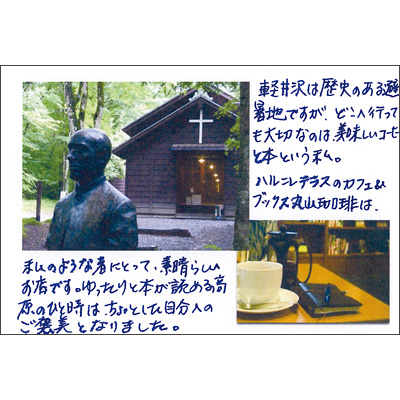 軽井沢は歴史のある避
暑地ですが、どこへ行って
も大切なのは、美味しいコーヒー
と本という私。
ハルニレテラスのカフェ&
ブックス丸山珈琲は、
私のような者にとって、素晴らしい
お店です。ゆったりと本が読める高
原のひと時は、ちょっとした自分への
ご褒美となりました。